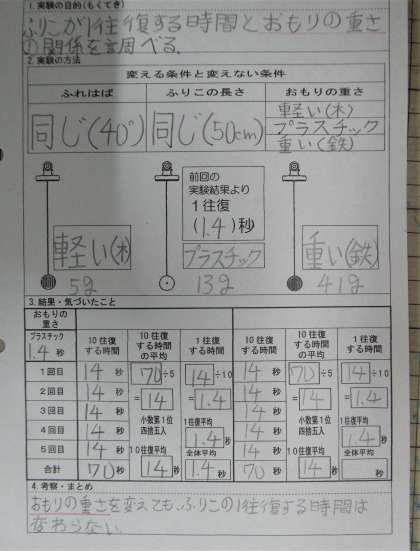 1. 実験の目的(もくてき)
ふりこが1往復する時間とおもりの重さ
の関係を調べる.
2. 実験の方法
変える条件と変えない条件
ふれはば ふりこの長さ おもりの重さ
同じ(40°) 同じ(50cm) 軽い(木)
プラスチック
重い(鉄)
前回の
実験結果より
1往復
(1.4)秒
軽い(木) プラスチック 重い(鉄)
5g 13g 41g
3. 結果・気づいたこと
おもりの
重さ
プラスチック
1.4 秒
10往復
する時間
10往復
する時間
の平均
1往復
する時間
10往復
する時間
10往復
する時間
の平均
1往復
する時間
1回目 14 秒 70÷5 14÷10 14 秒 70÷5 14÷10
2回目 14 秒 =14 =1.4 14 =14 =1.4
3回目 14 秒 小数第1位 1往復平均 14 小数第1位 1往復平均
4回目 14 秒 四捨五入 1.4秒 14 四捨五入 1.4秒
5回目 14 秒 10往復平均 全体平均 14 秒 10往復平均 全体平均
合計 70秒 14秒 1.4秒 70 秒 14秒 1.4秒
4. 考察・まとめ
おもりの重さを変えても、ふりこの1往復する時間は
変わらない.